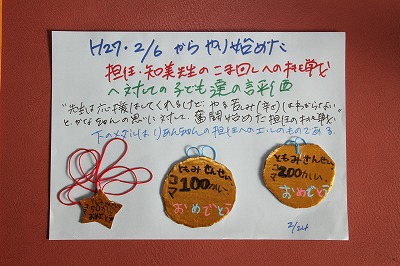 H27・2/6 からやり始めた
担任・知美先生のこま回しへの挑戦
へ対しての子ども達の評価
"先生は応援はしてくれるけど やる苦しみ(辛さ)はわからない"
と、かなちゃんの思いに対して、奮闘始めた担任の挑戦
下のメダルは りあんちゃんの担任へのエールのものである。
おめでとう
ともみせんせい
コマ
100かい
おめでとう
ともみせんせい
コマ
200かい
おめでとう
2/24